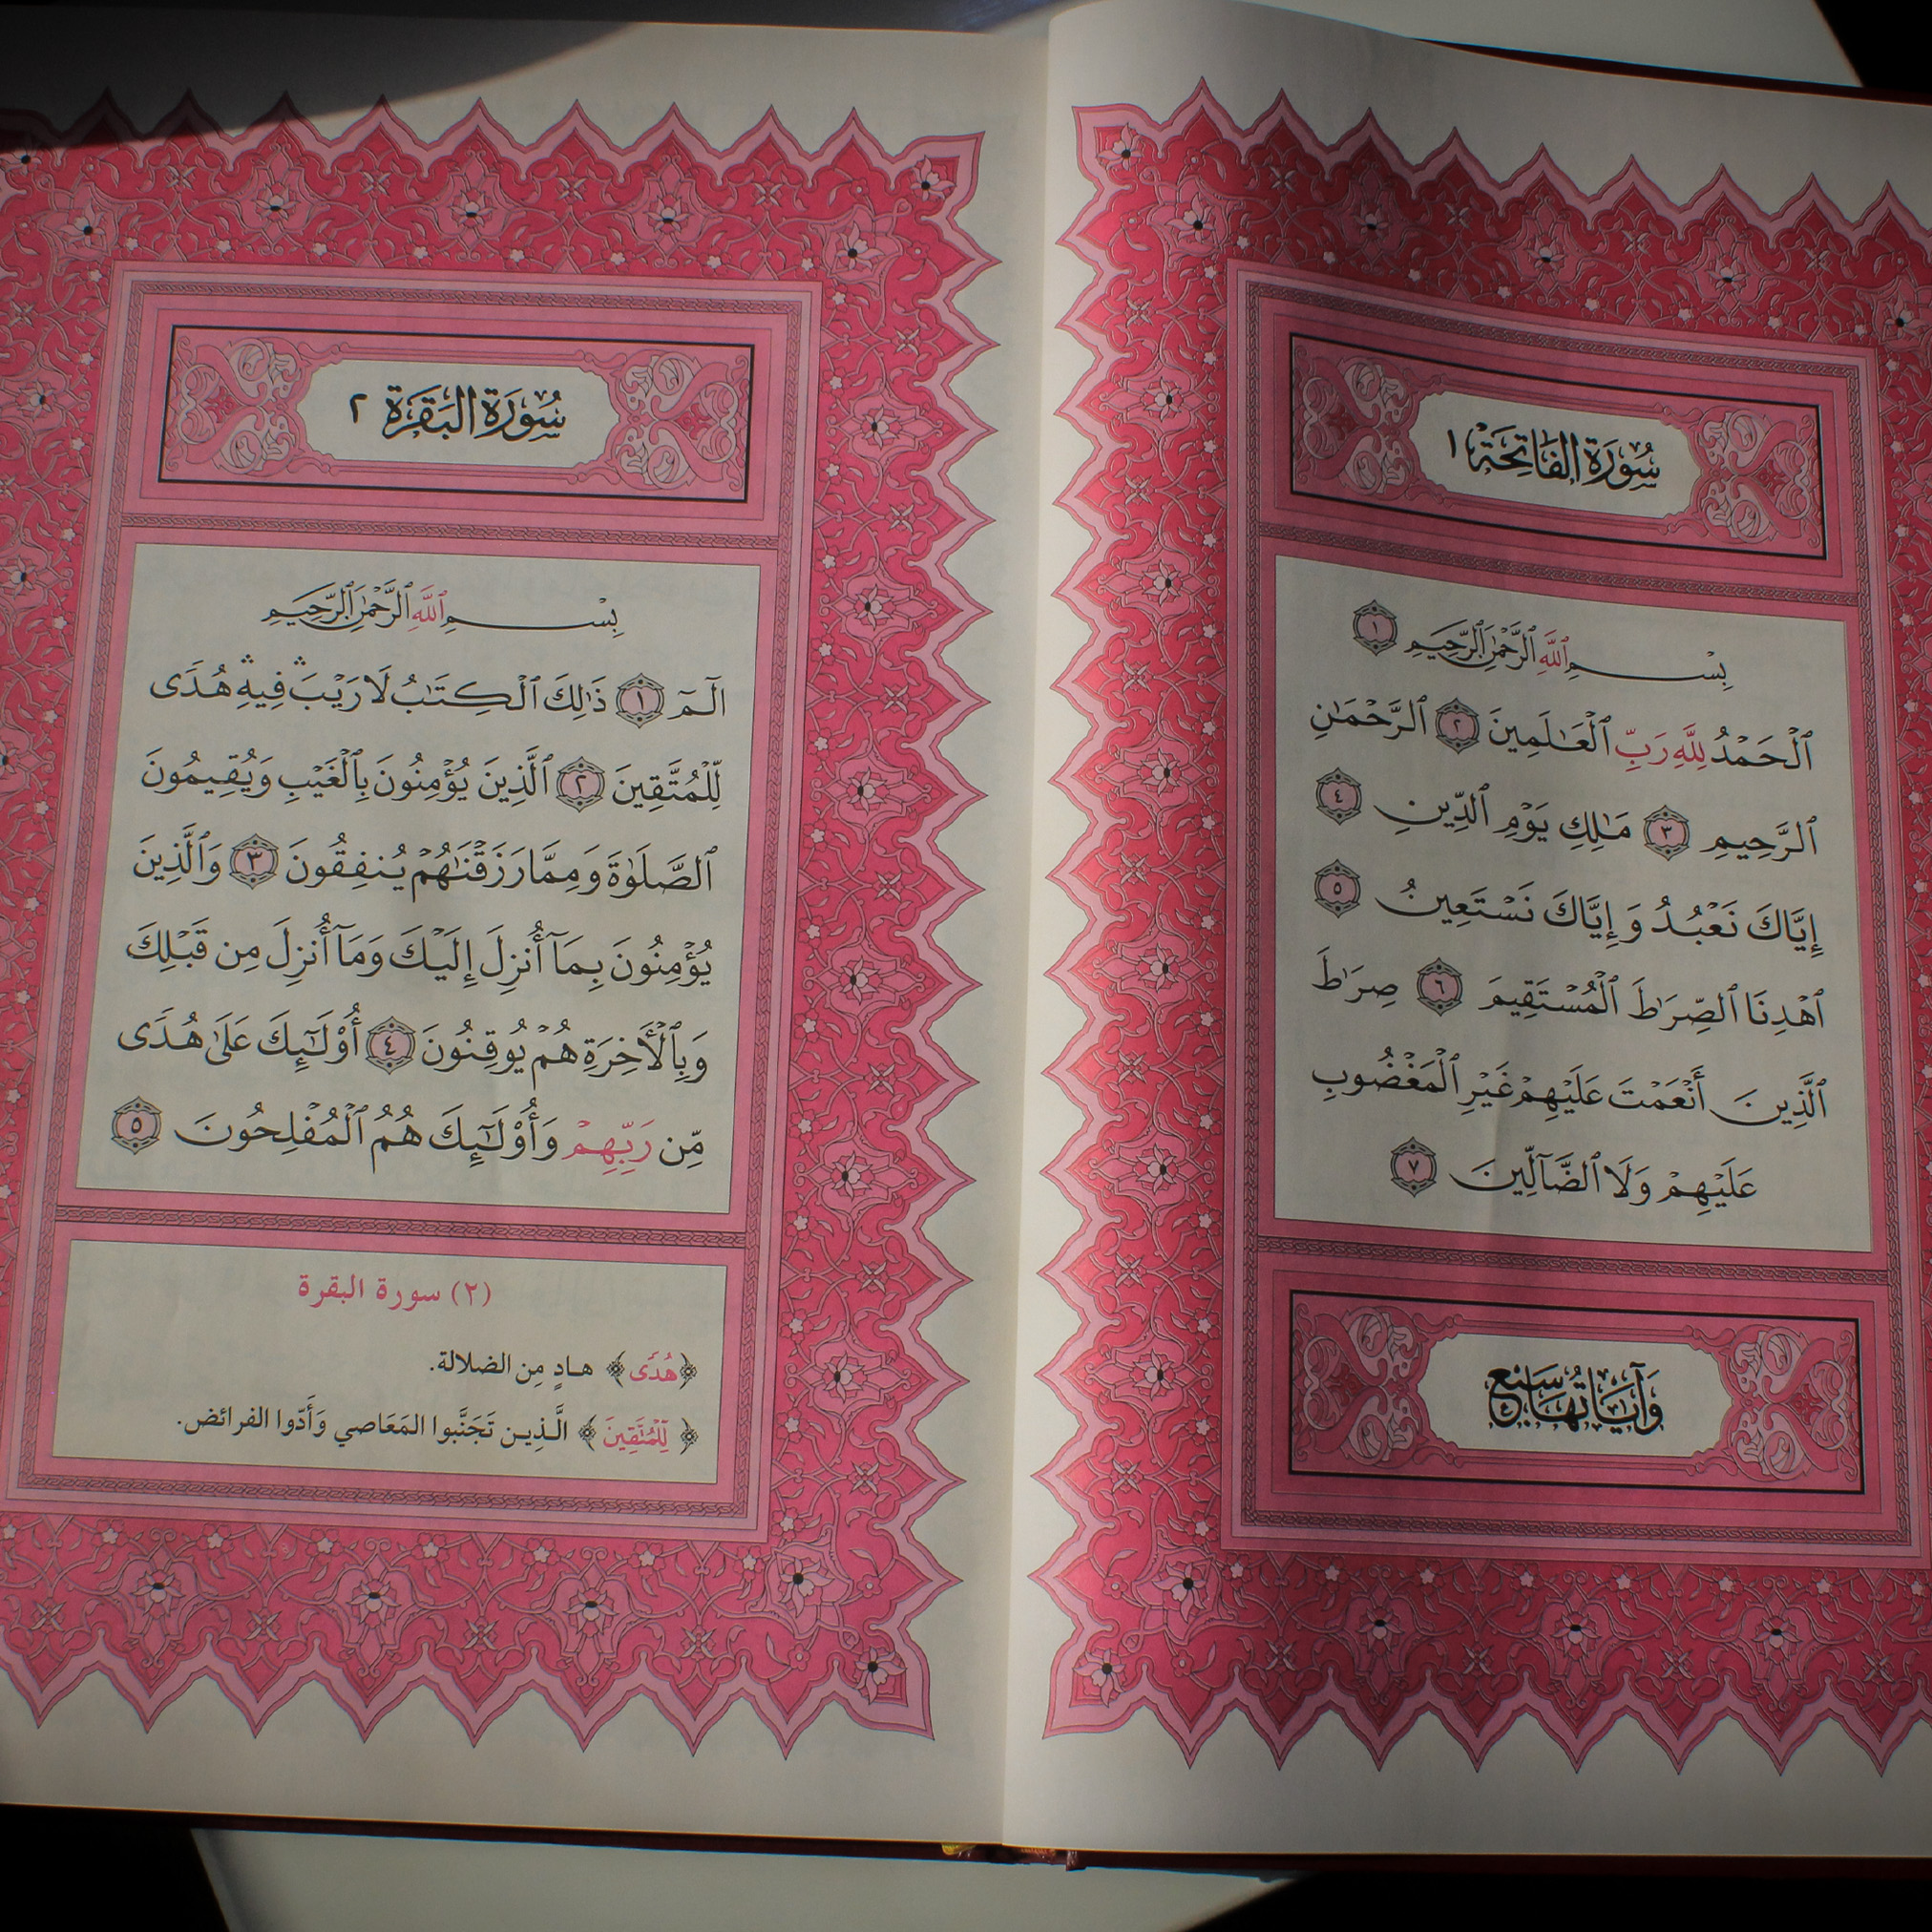 سُورَةُ الفَاتِحَةِ ١
بِسْمِ ٱللَّهِ ٱلرَّحْمَٰنِ ٱلرَّحِيمِ ١
ٱلْحَمْدُ لِلَّهِ رَبِّ ٱلْعَٰلَمِينَ ٢ ٱلرَّحْمَٰنِ
ٱلرَّحِيمِ ٣ مَٰلِكِ يَوْمِ ٱلدِّينِ ٤
إِيَّاكَ نَعْبُدُ وَإِيَّاكَ نَسْتَعِينُ ٥
ٱهْدِنَا ٱلصِّرَٰطَ ٱلْمُسْتَقِيمَ ٦ صِرَٰطَ
ٱلَّذِينَ أَنْعَمْتَ عَلَيْهِمْ غَيْرِ ٱلْمَغْضُوبِ
عَلَيْهِمْ وَلَا ٱلضَّآلِّينَ ٧
وَآيَاتُهَا سَبْعٌ
سُورَةُ البَقَرَةِ ٢
بِسْمِ ٱللَّهِ ٱلرَّحْمَٰنِ ٱلرَّحِيمِ
الٓمٓ ١ ذَٰلِكَ ٱلْكِتَٰبُ لَا رَيْبَ ۛ فِيهِ ۛ هُدًى
لِّلْمُتَّقِينَ ٢ ٱلَّذِينَ يُؤْمِنُونَ بِٱلْغَيْبِ وَيُقِيمُونَ
ٱلصَّلَوٰةَ وَمِمَّا رَزَقْنَٰهُمْ يُنفِقُونَ ٣ وَٱلَّذِينَ
يُؤْمِنُونَ بِمَآ أُنزِلَ إِلَيْكَ وَمَآ أُنزِلَ مِن قَبْلِكَ
وَبِٱلْأَخِرَةِ هُمْ يُوقِنُونَ ٤ أُو۟لَٰٓئِكَ عَلَىٰ هُدًى
مِّن رَّبِّهِمْ وَأُو۟لَٰٓئِكَ هُمُ ٱلْمُفْلِحُونَ ٥
(٢) سورة البقرة
﴿هُدًى﴾ هادٍ مِن الضلالة.
﴿لِّلْمُتَّقِينَ﴾ الَّذِين تَجَنَّبوا المَعَاصي وَأَدّوا الفرائض.